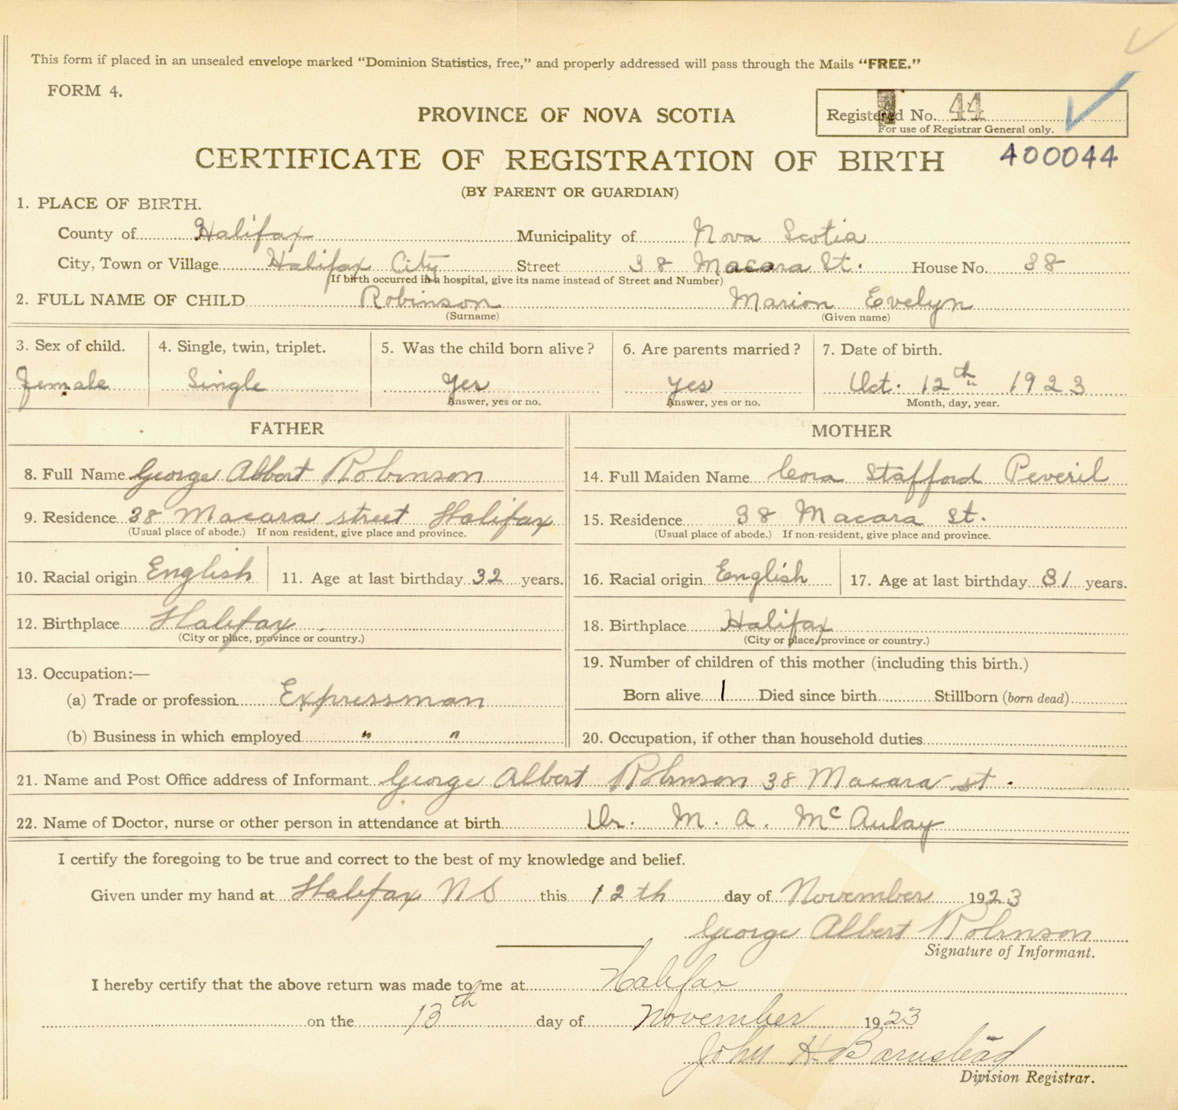 This form if placed in an unsealed envelope marked "Dominion Statistics, free," and properly addressed will pass through the Mails "FREE."
FORM 4.
PROVINCE OF NOVA SCOTIA
Registered No. 44
For use of Registrar General only.
CERTIFICATE OF REGISTRATION OF BIRTH 400044
(BY PARENT OR GUARDIAN)
1. PLACE OF BIRTH.
County of Halifax Municipality of Nova Scotia
City, Town or Village Halifax City Street 38 Macara St. House No. 38
(If birth occurred in a hospital, give its name instead of Street and Number)
2. FULL NAME OF CHILD Robinson Marion Evelyn
(Surname) (Given name)
3. Sex of child. 4. Single, twin, triplet. 5. Was the child born alive? 6. Are parents married? 7. Date of birth.
Female Single Yes Yes Oct. 12th 1923
Answer, yes or no. Answer, yes or no. Month, day, year.
FATHER MOTHER
8. Full Name George Albert Robinson 14. Full Maiden Name Cora Stafford Peveril
9. Residence 38 Macara street Halifax 15. Residence 38 Macara St.
(Usual place of abode.) If non-resident, give place and province. (Usual place of abode.) If non-resident, give place and province.
10. Racial origin English 11. Age at last birthday 32 years. 16. Racial origin English 17. Age at last birthday 31 years.
12. Birthplace Halifax 18. Birthplace Halifax
(City or place, province or country.) (City or place, province or country.)
13. Occupation:— 19. Number of children of this mother (including this birth.)
(a) Trade or profession Expressman Born alive 1 Died since birth Stillborn (born dead)
(b) Business in which employed " " 20. Occupation, if other than household duties
21. Name and Post Office address of Informant George Albert Robinson 38 Macara st.
22. Name of Doctor, nurse or other person in attendance at birth Dr. M. A. McAulay
I certify the foregoing to be true and correct to the best of my knowledge and belief.
Given under my hand at Halifax N S this 12th day of November 1923
George Albert Robinson
Signature of Informant.
I hereby certify that the above return was made to me at Halifax
on the 13th day of November 1923
John H. Barnstead
Division Registrar.